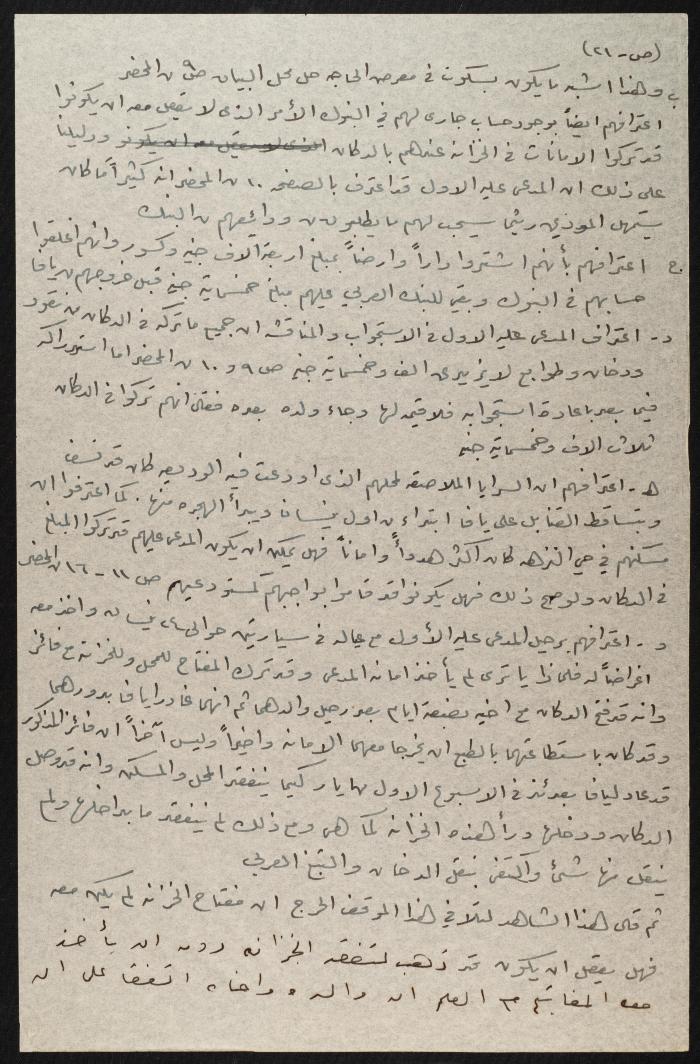 (ص - ٢١)
وهذا اشبه ما يكون بسكوت في معرض الحاجه على محل البيان ص ٩ من المحضر
ب اعترافهم ايضاً بوجود حساب جاري لهم في البنوك الأمر الذي لا يعقل معه ان يكونوا
قد تركوا الامانات في الخزانه عندهم بالدكان الذي لا يعقل معه ان يكونوا ودليلنا
على ذلك ان المدعى عليه الاول قد اعترف بالصفحه ١٠ من المحضر انه كثيراً ما كان
يستمهل المودعين ريثما يسحب لهم ما يطلبونه من ودائعهم من البنك
ج. اعترافهم بأنهم اشتروا داراً وارضاً بمبلغ اربعة الاف جنيه وكسور وانهم اغلقوا
حسابهم في البنوك وبقي للبنك العربي عليهم مبلغ خمسماية جنيه قبل خروجهم من يافا
د - اعتراف المدعى عليه الاول في الاستجواب والمناقشه ان جميع ما تركه في الدكان من نقود
ودخان وطوابع لا يزيد عن الف وخمسماية جنيه ص ٩ و ١٠ من المحضر اما استدراكه
فيما بعد باعادة استجوابه فلا قيمة لها وجاء ولده بعده فقال انهم تركوا في الدكان
ثلاث الاف وخمسماية جنيه
هـ - اعترافهم ان السرايا الملاصقه لمحلهم الذي اودعت فيه الوديعه كان قد نسف
وبتساقط القنابل على يافا ابتداء من اول نيسان وببدأ الهجره منها. كما اعترفوا ان
مسكنهم في حي النزهه كان اكثر هدوءاً واماناً فهل يمكن ان يكون المدعى عليهم قد تركوا المبلغ
في الدكان ولو صح ذلك فهل يكونوا قد قاموا بواجبهم كمستودعين ص ١١ - ١٦ من المحضر
و - اعترافهم برحيل المدعى عليه الأول مع عياله في سيارتين حوالي نيسان واخذ معه
اغراضاً له فلماذا يا ترى لم يأخذ امانه المدعى وقد ترك المفتاح للمحل وللخزانة مع فائز
وانه قد فتح الدكان مع اخيه بضعة ايام بعد رحيل والدهما ثم انهما غادرا يافا بدورهما
وقد كان باستطاعتهما بالطبع ان يخرجا معهما الامانه واخيراً وليس آخراً ان فائز المذكور
قد عاد ليافا بعدئذ في الاسبوع الاول من ايار كيما يتفقد المحل والمسكن وانه قد وصل
الدكان ودخلها ورأى هذه الخزانه كما هي ومع ذلك لم يتفقد ما بداخلها ولم
ينقل منها شئ واكتفى بنقل الدخان والتبغ العربي
ثم قال هذا الشاهد لتلافي هذا الموقف الحرج ان مفتاح الخزانه لم يكن معه
فهل يعقل ان يكون قد ذهب لتفقد الخزانه دون ان يأخذ
معه المفاتيح مع العلم ان والده واخاه اتفقا على ان